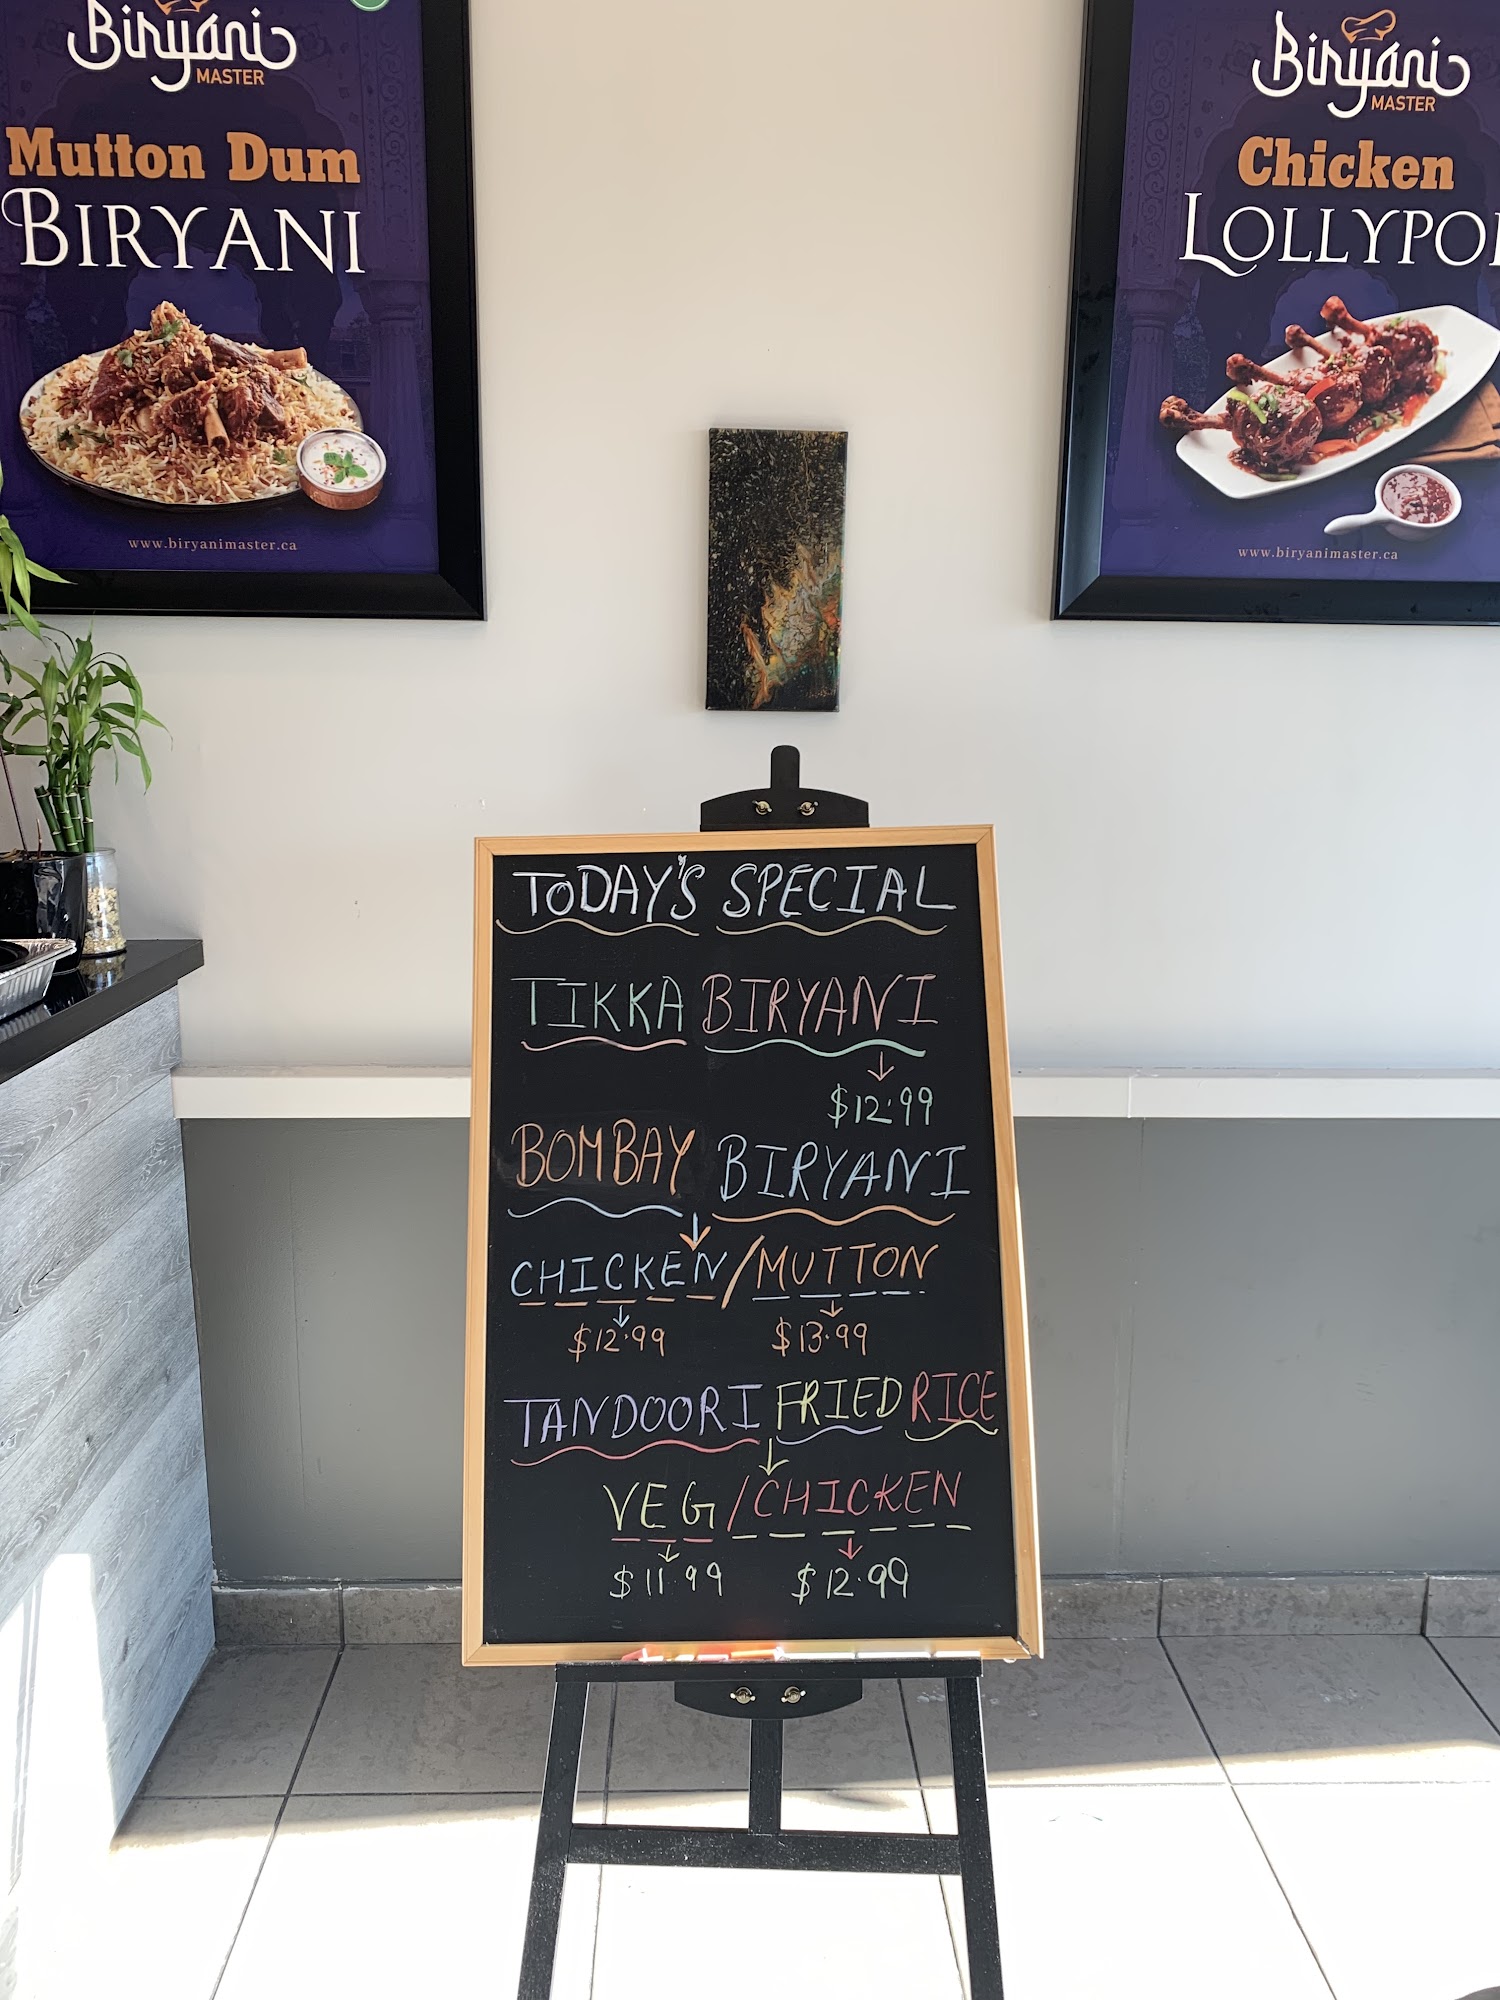 Biryani
MASTER
Mutton Dum
BIRYANI
www.biryanimaster.ca
Biryani
MASTER
Chicken
LOLLYPO
www.biryanimaster.ca
TODAY'S SPECIAL
TIKKA BIRYANI
$12.99
BOMBAY BIRYANI
CHICKEN/MUTTON
$12.99 $13.99
TANDOORI FRIED RICE
VEG/CHICKEN
$11.99 $12.99